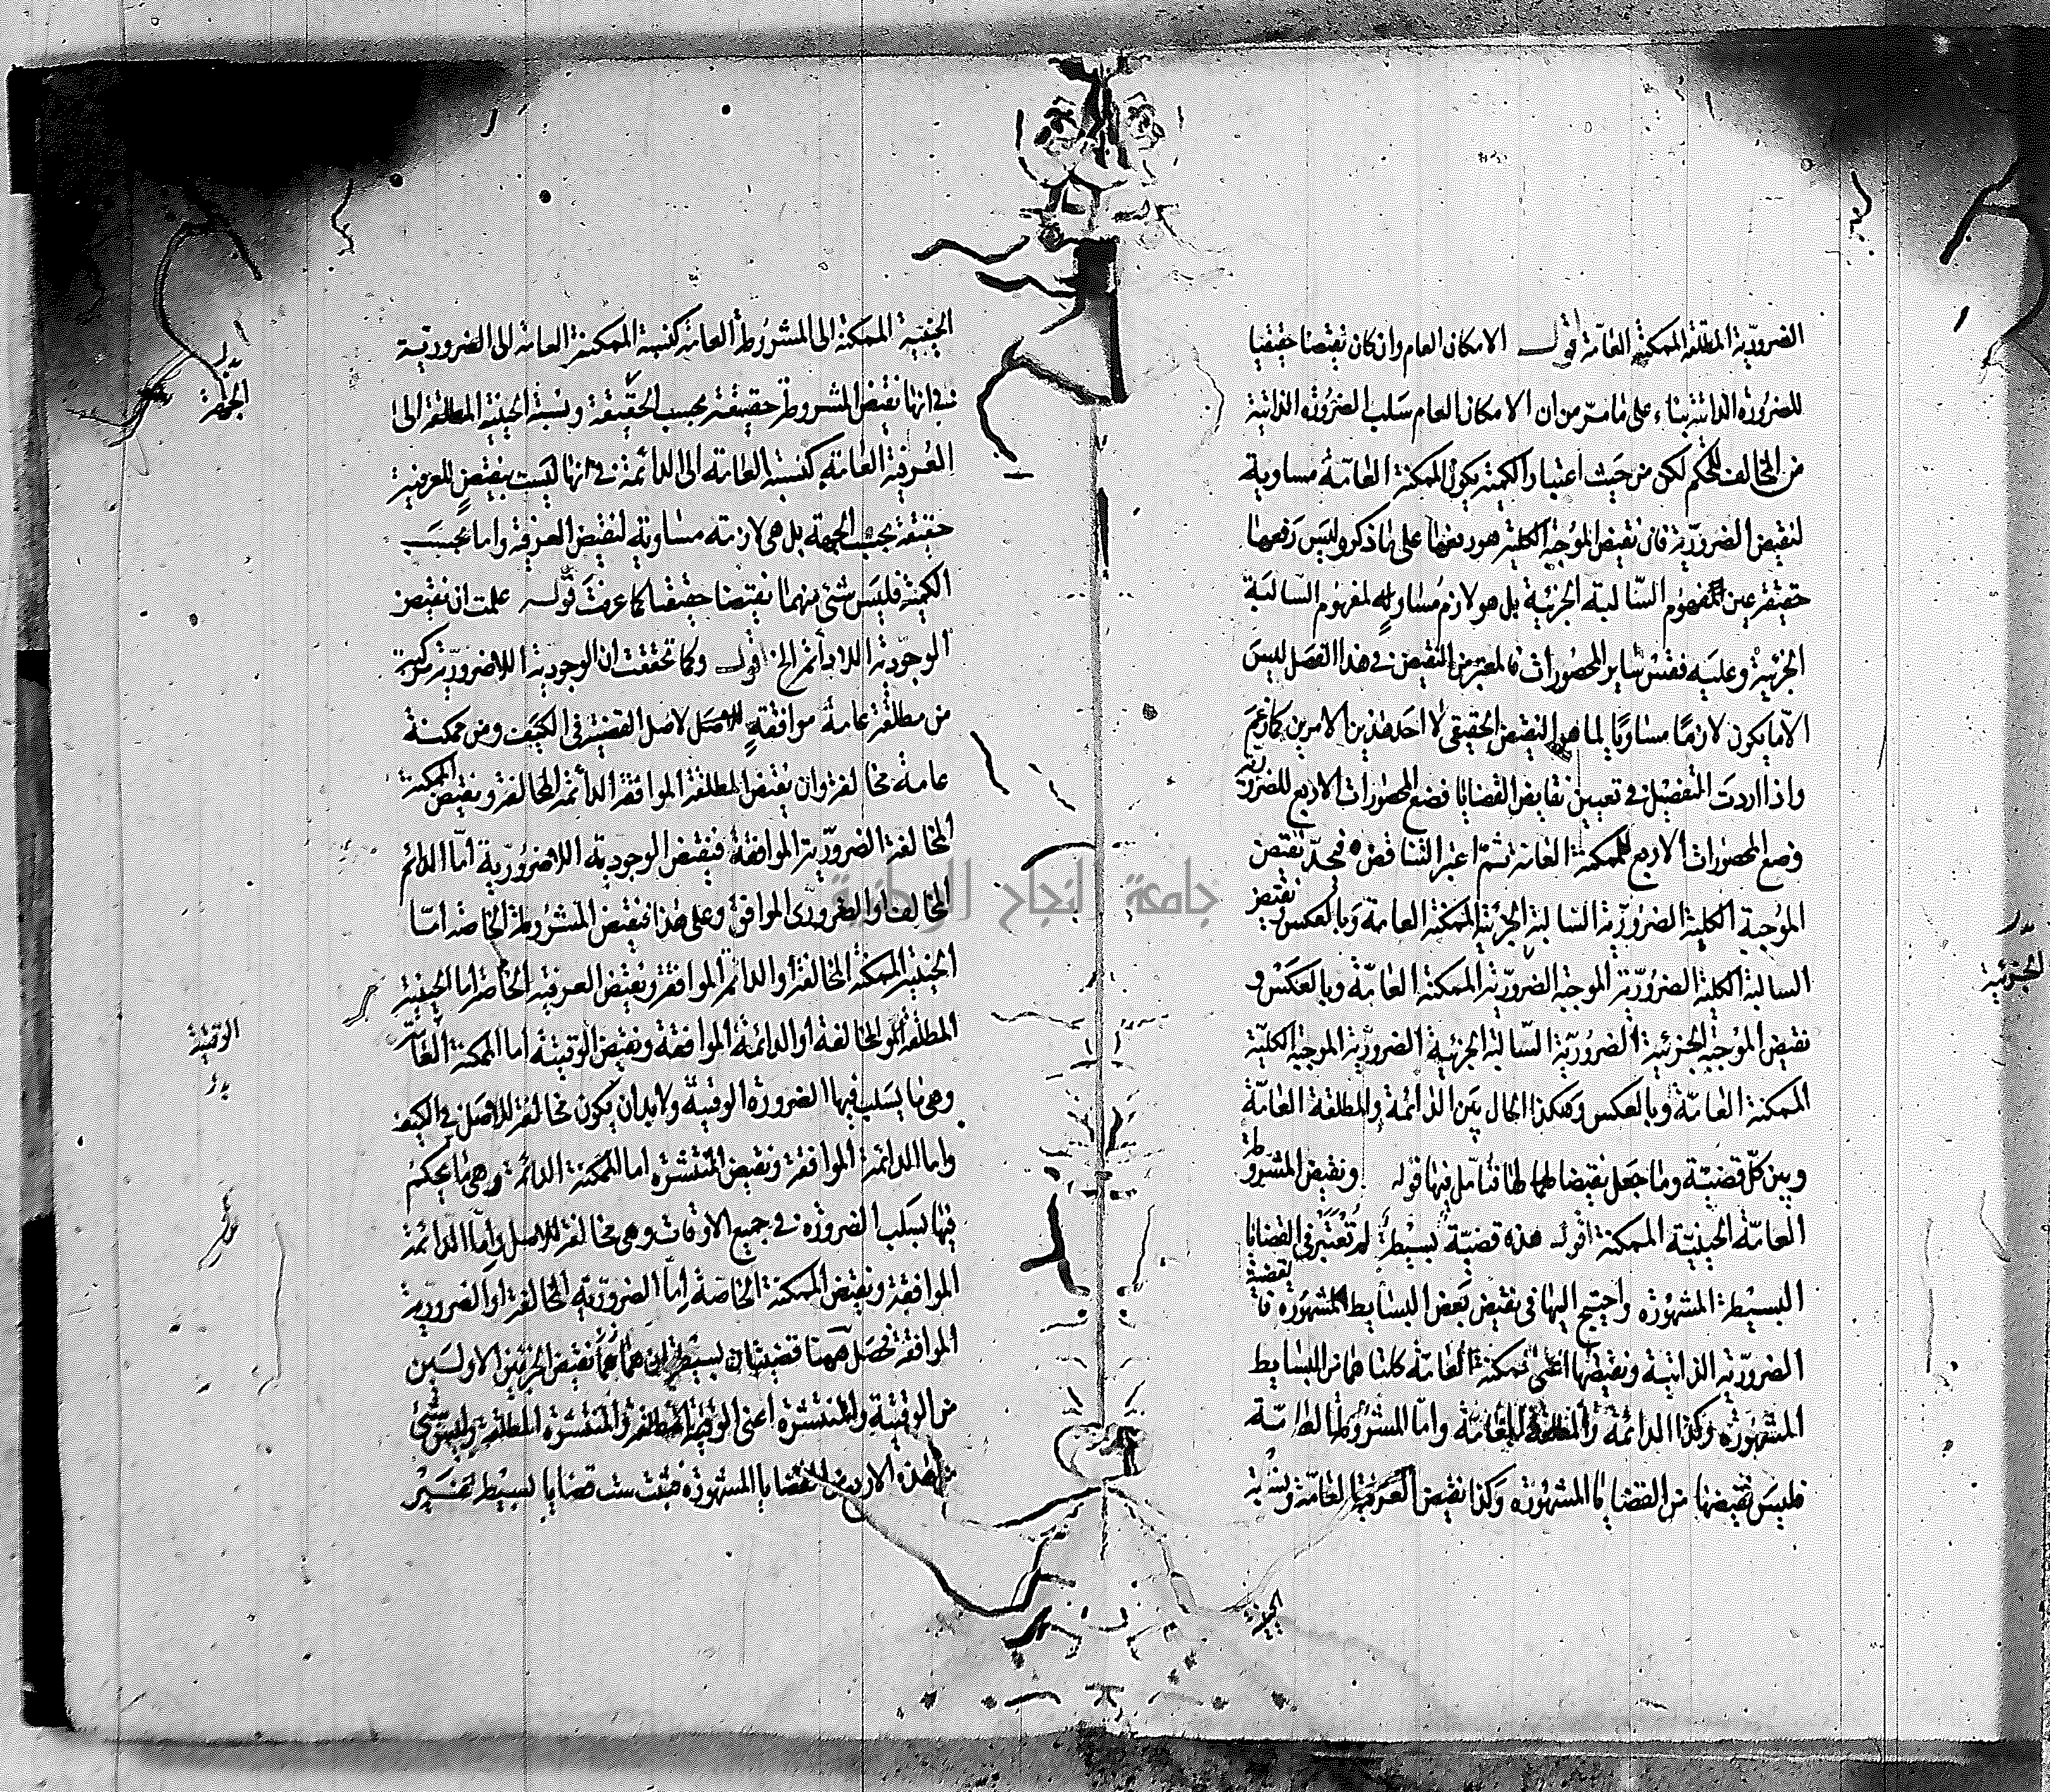 الضرورية المطلقة الممكنة العامة اقول الامكان العام وان كان نقيضا حقيقيا
للضرورة الذاتية بناء على ما مر من ان الامكان العام سلب الضرورة الذاتية
من المخالف للحكم لكن من حيث اعتبار الكمية يكون الممكنة العامة مساوية
لنقيض الضرورية فان نقيض الموجبة الكلية هو رفعها على ما ذكر وليس رفعها
حقيقة عين المفهوم السالبة الجزئية بل هو لازم مساو له لمفهوم السالبة
الجزئية وعليه فقس ساير المحصورات فالمعتبر من النقيض في هذا الفصل ليس
الا ما يكون لازما مساويا لما هو النقيض الحقيقي لا احد هذين الامرين كما زعم
واذا اردت التفصيل في تعيين نقايض القضايا فضع المحصورات الاربع للضرورية
وضع المحصورات الاربع للممكنة العامة ثم اعتبر التناقض فخذ نقيض
الموجبة الكلية الضرورية السالبة الجزئية الممكنة العامة وبالعكس نقيض
السالبة الكلية الضرورية الموجبة الضرورية الممكنة العامة وبالعكس و
نقيض الموجبة الجزئية الضرورية السالبة الجزئية الضرورية الموجبة الكلية
الممكنة العامة وبالعكس وهكذا الحال بين الدائمة والمطلقة العامة
وبين كل قضية وما جعل نقيضا لها فتامل فيها قوله ونقيض المشروطة
العامة الحينية الممكنة اقول هذه قضية بسيطة لم تعتبر في القضايا
البسيطة المشهورة واحتيج اليها في نقيض بعض البسايط المشهورة فا
لقضية
الضرورية الذاتية ونقيضها اعني الممكنة العامة كلتا هما من البسايط
المشهورة وكذا الدائمة والمطلقة العامة واما المشروطة العامة
فليس نقيضها من القضايا المشهورة وكذا نقيض العرفية العامة ونسبة
الحينية
الجزئية
الحينية الممكنة الى المشروطة العامة كنسبة الممكنة العامة الى الضرورية
في انها نقيض المشروطة حقيقة بحسب الحقيقة ونسبة الحينية المطلقة الى
الجهة
العرفية العامة كنسبة العامة الى الدائمة في انها ليست بنقيض للعرفية
حقيقة بحسب الجهة بل هي لازمة مساوية لنقيض العرفية واما بحسب
الكمية فليس شئ منهما نقيضا حقيقيا كما عرفت قوله علمت ان نقيض
الوجودية اللادائمة الخ اقول وكما تحققت ان الوجودية اللاضرورية مركبة
من مطلقة عامة موافقة لاصل القضية في الكيف ومن ممكنة
عامة مخالفة وان نقيض المطلقة الموافقة الدائمة المخالفة ونقيض الممكنة
المخالفة الضرورية الموافقة فنقيض الوجودية اللاضرورية اما الدائم
المخالف او الضروري الموافق وعلى هذا فنقيض المشروطة الخاصة اما
الحينية الممكنة المخالفة او الدائمة الموافقة ونقيض العرفية الخاصة اما الحينية
المطلقة المخالفة او الدائمة الموافقة ونقيض الوقتية اما الممكنة العامة
الوقتية
وهي ما يسلب فيها الضرورة الوقتية ولا بد ان يكون مخالفة للاصل في الكيف
واما الدائمة الموافقة ونقيض المنتشرة اما الممكنة الدائمة وهي ما يحكم
فيها بسلب الضرورة في جميع الاوقات وهي مخالفة للاصل واما الدائمة
الموافقة ونقيض الممكنة الخاصة اما الضرورية المخالفة او الضرورية
الموافقة فحصل ههنا قضيتان بسيطتان هما نقيض الجزئين الاولين
من الوقتية والمنتشرة اعني الوقتية المطلقة والمنتشرة المطلقة وليس شئ
هذه الاربع من القضايا المشهورة فبقيت ست قضايا بسيطة
جامعة النجاح الوطنية